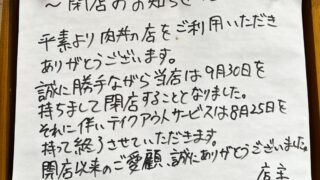 ～閉店のお知らせ～
平素より肉丼の店をご利用いただき
ありがとうございます。
誠に勝手ながら当店は9月30日を
持ちまして閉店することとなりました。
それに伴いテイクアウトサービスは8月25日を
持って終了させていただきます。
開店以来のご愛顧、誠にありがとうございました。
店主